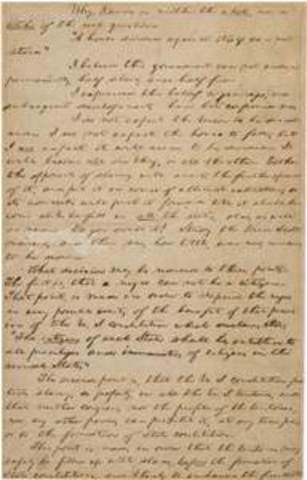 Why, Kansas is neither the whole, nor a
tithe of the real question.
"A house divided against itself can not
stand"
I believe this government can not endure
permanently, half slave, and half free.
I expressed this belief a year ago; and
subsequent developments have but confirmed me.
I do not expect the Union to be
I do not expect the house to fall; but
I do expect it will cease to be divided. It
will become all one thing, or all the other. Either
the opponents of slavery will arrest the further spread
of it, and put it in course of ultimate extinction; or
its advocates will push it forward till it shall become
alike lawfull in all the states, old, as well
as new. Do you doubt it? Study the Dred Scott
decision, and then see, how little, even now, remains
to be done.
That decision may be reduced to three points.
The first is, that a negro can not be a citizen.
That point is made in order to deprive the negro
in every possible event, of the benefit of that provis-
ion of the U. S constitution which declares that:
"The citizens of each State shall be entitled to
all previleges and immunities of citizens in the
several States."
The second point is, that the U. S constitution pro
tects slavery, as property, in all the U. S. territories, and
that neither congress, nor the people of the territories,
nor any other power, can prohibit it, at any time prior
to the formation of State constitutions.
This point is made, in order that the territories may
safely be filled up with slaves, before the formation of
State constitutions, and thereby to embarrass the